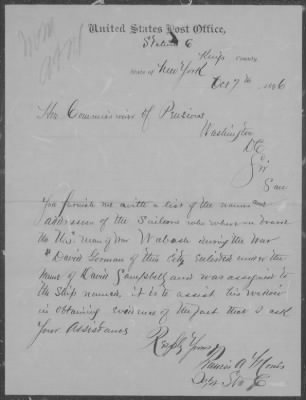 United States Post Office,
Station C
Kings COUNTY
STATE OF New York
Oct 7th 1886
The Commissioner of Pensions
Washington
D.C.
Can
You furnish me with a list of the names and
addresses of the Sailors who where on board
the Man of War Wabash during the War
David Gorman of this City enlisted under the
name of David Campbell and was assigned to
the Ship named, it is to assist his widow
in obtaining evidence of the fact that I ask
Your Assistance
Respy Yours
Sta C